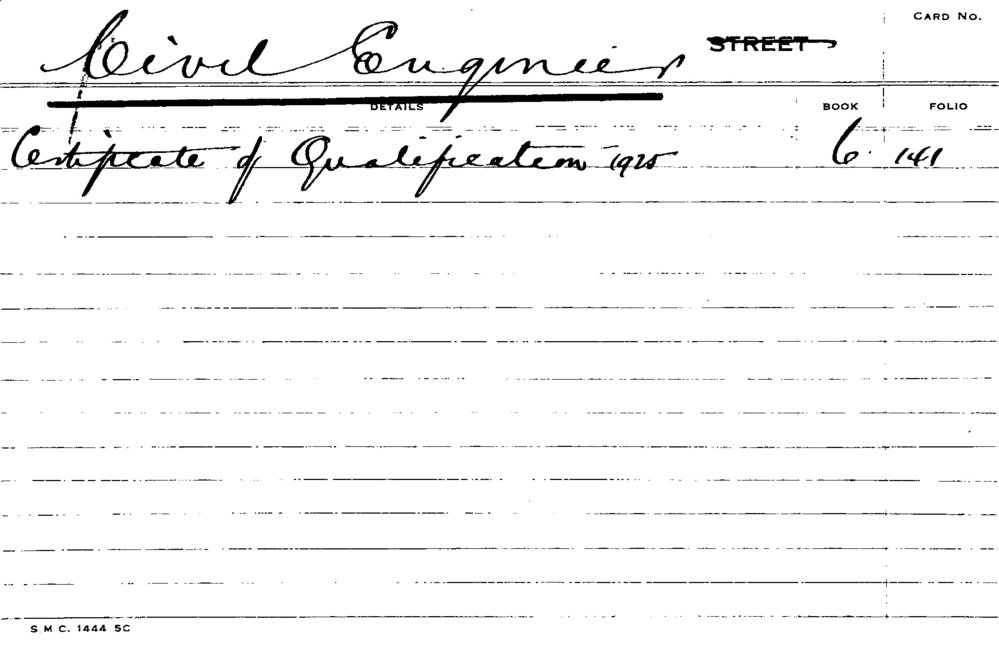 CARD NO.
Civil Engineer STREET
DETAILS BOOK FOLIO
Certificate of Qualification - 1925 6. 141
S M C. 1444 5C